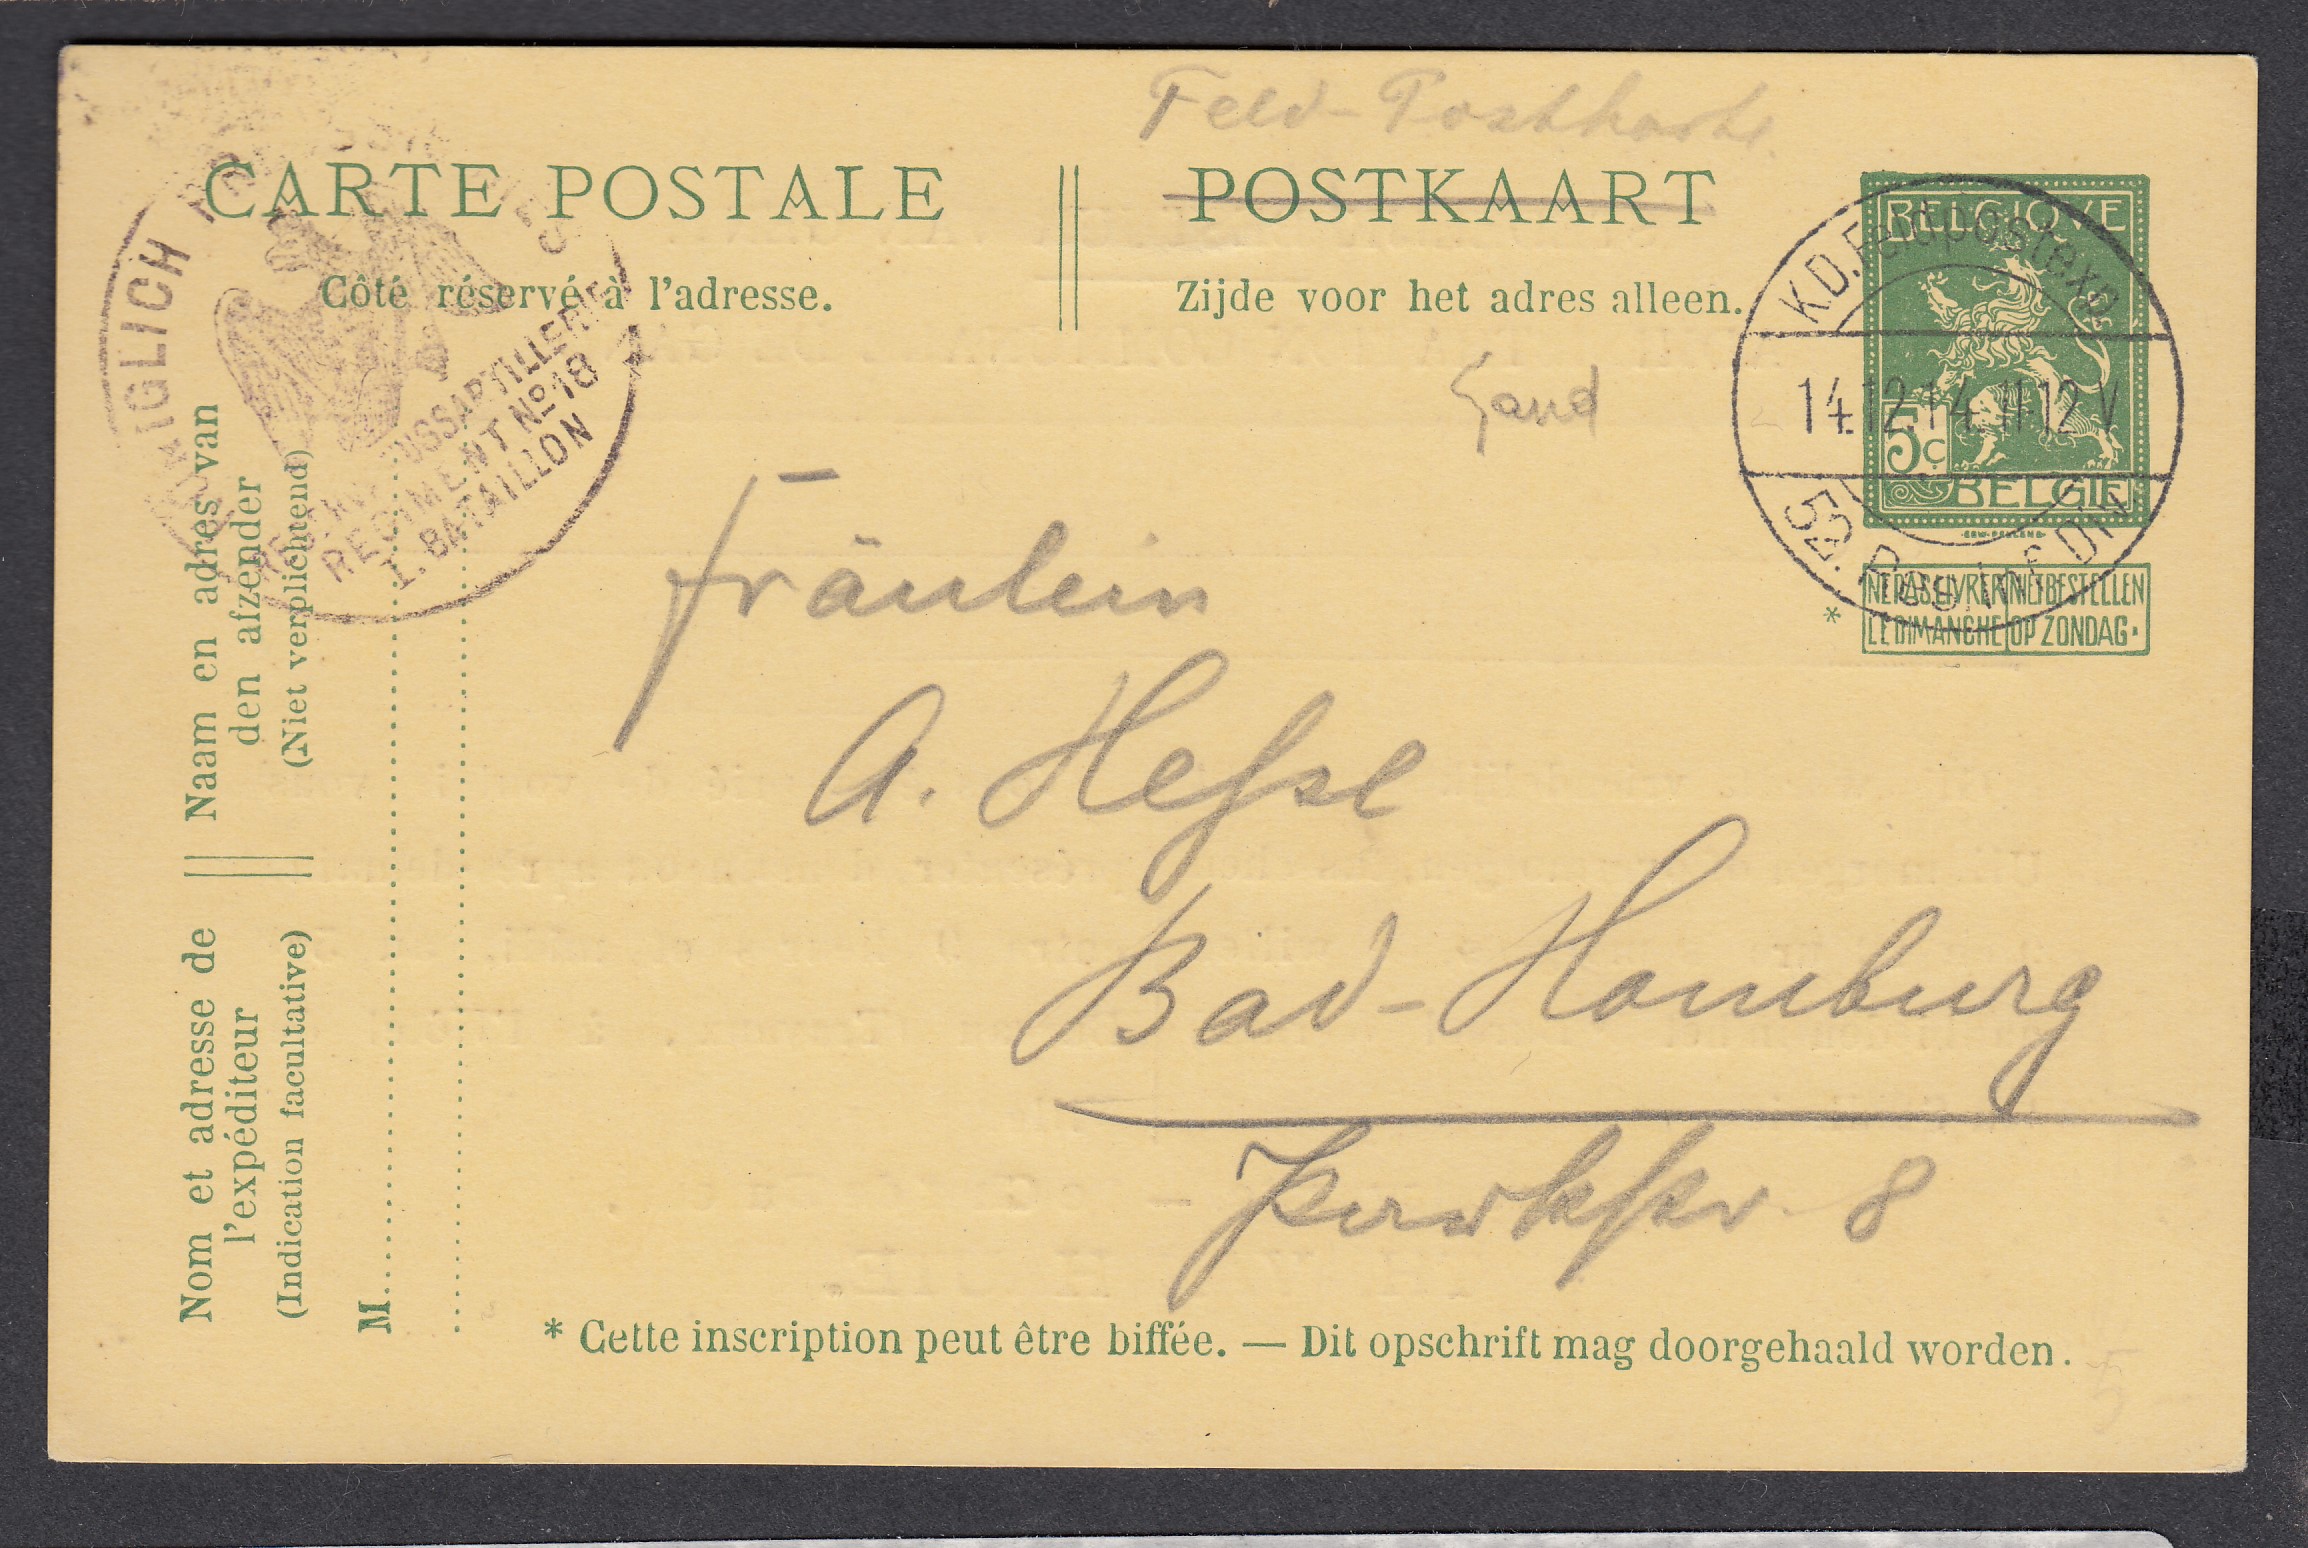 Feld-Postkarte.
CARTE POSTALE
POSTKAART
Côté réservé à l'adresse.
Zijde voor het adres alleen.
BELGIQUE
5c
BELGIE
NE PAS LIVRER LE DIMANCHE
NIET BESTELLEN OP ZONDAG.
*
K.D. Feldpostexp.
14.12.14.11-12 V
53. Res. Inf. Div.
REGIMENT No 18
I. BATAILLON
Gand
Fräulein
A. Hesse
Bad-Homburg
8
Naam en adres van
den afzender
(Niet verplichtend)
Nom et adresse de
l'expéditeur
(Indication facultative)
M
* Cette inscription peut être biffée. — Dit opschrift mag doorgehaald worden.
5